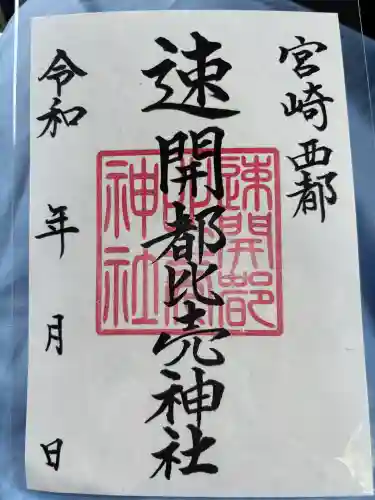 宮崎西都
速開都比売神社
令和 年 月 日
速開都
神社